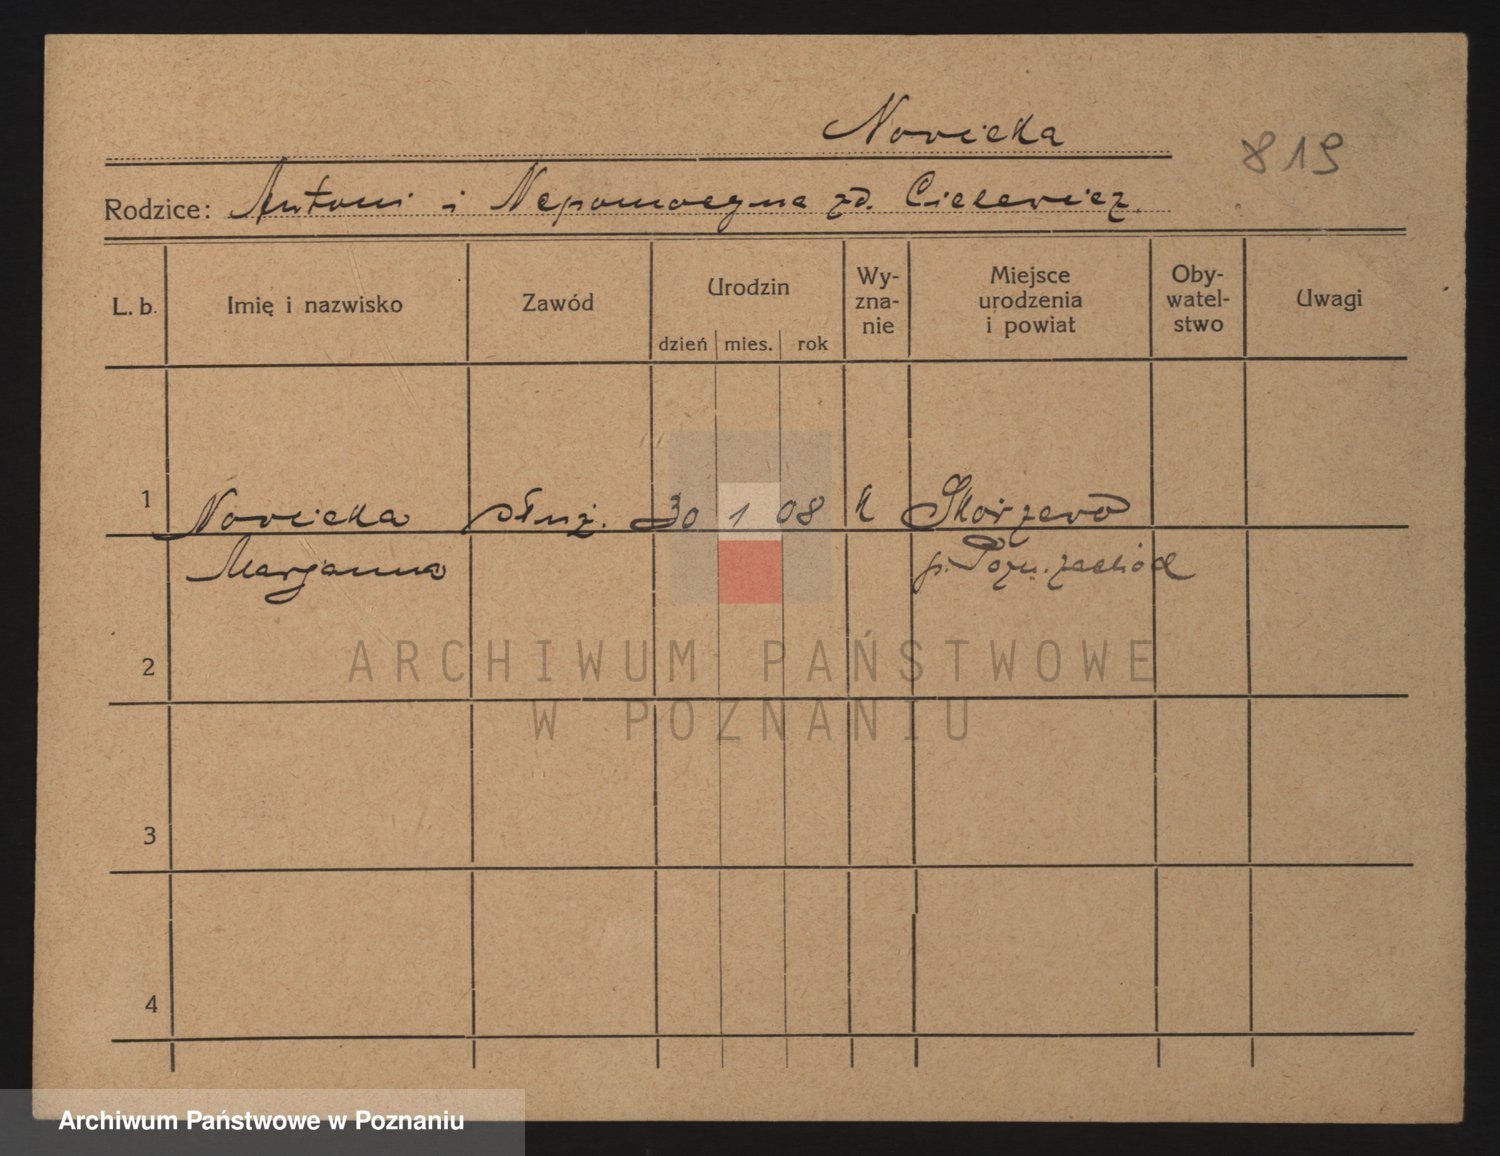 Nowicka
819
Rodzice: Antoni i Nepomucyna zd. Cielewicz
L. b. Imię i nazwisko Zawód Urodzin dzień mies. rok Wy-zna-nie Miejsce urodzenia i powiat Oby-watel-stwo Uwagi
1 Nowicka służ. 30 1 08 k Skórzewo
Marjanna p. Pozn. zachód
2
ARCHIWUM PAŃSTWOWE
W POZNANIU
3
4
Archiwum Państwowe w Poznaniu